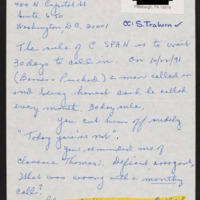 400 N. Capitol St
Suite 650
Washington, D.C. 20001
CC: S. Traham ✓
Pittsburgh, PA
The rule of C SPAN is to wait
30 days to call in. On 10/11/91
a man called in
and being honest said he called
every month 30 day rule.
You cut him off rudely
"Today you're not".
You reminded me of
Clarence Thomas. Deficit, arrogant,
What was wrong with a monthly
call?